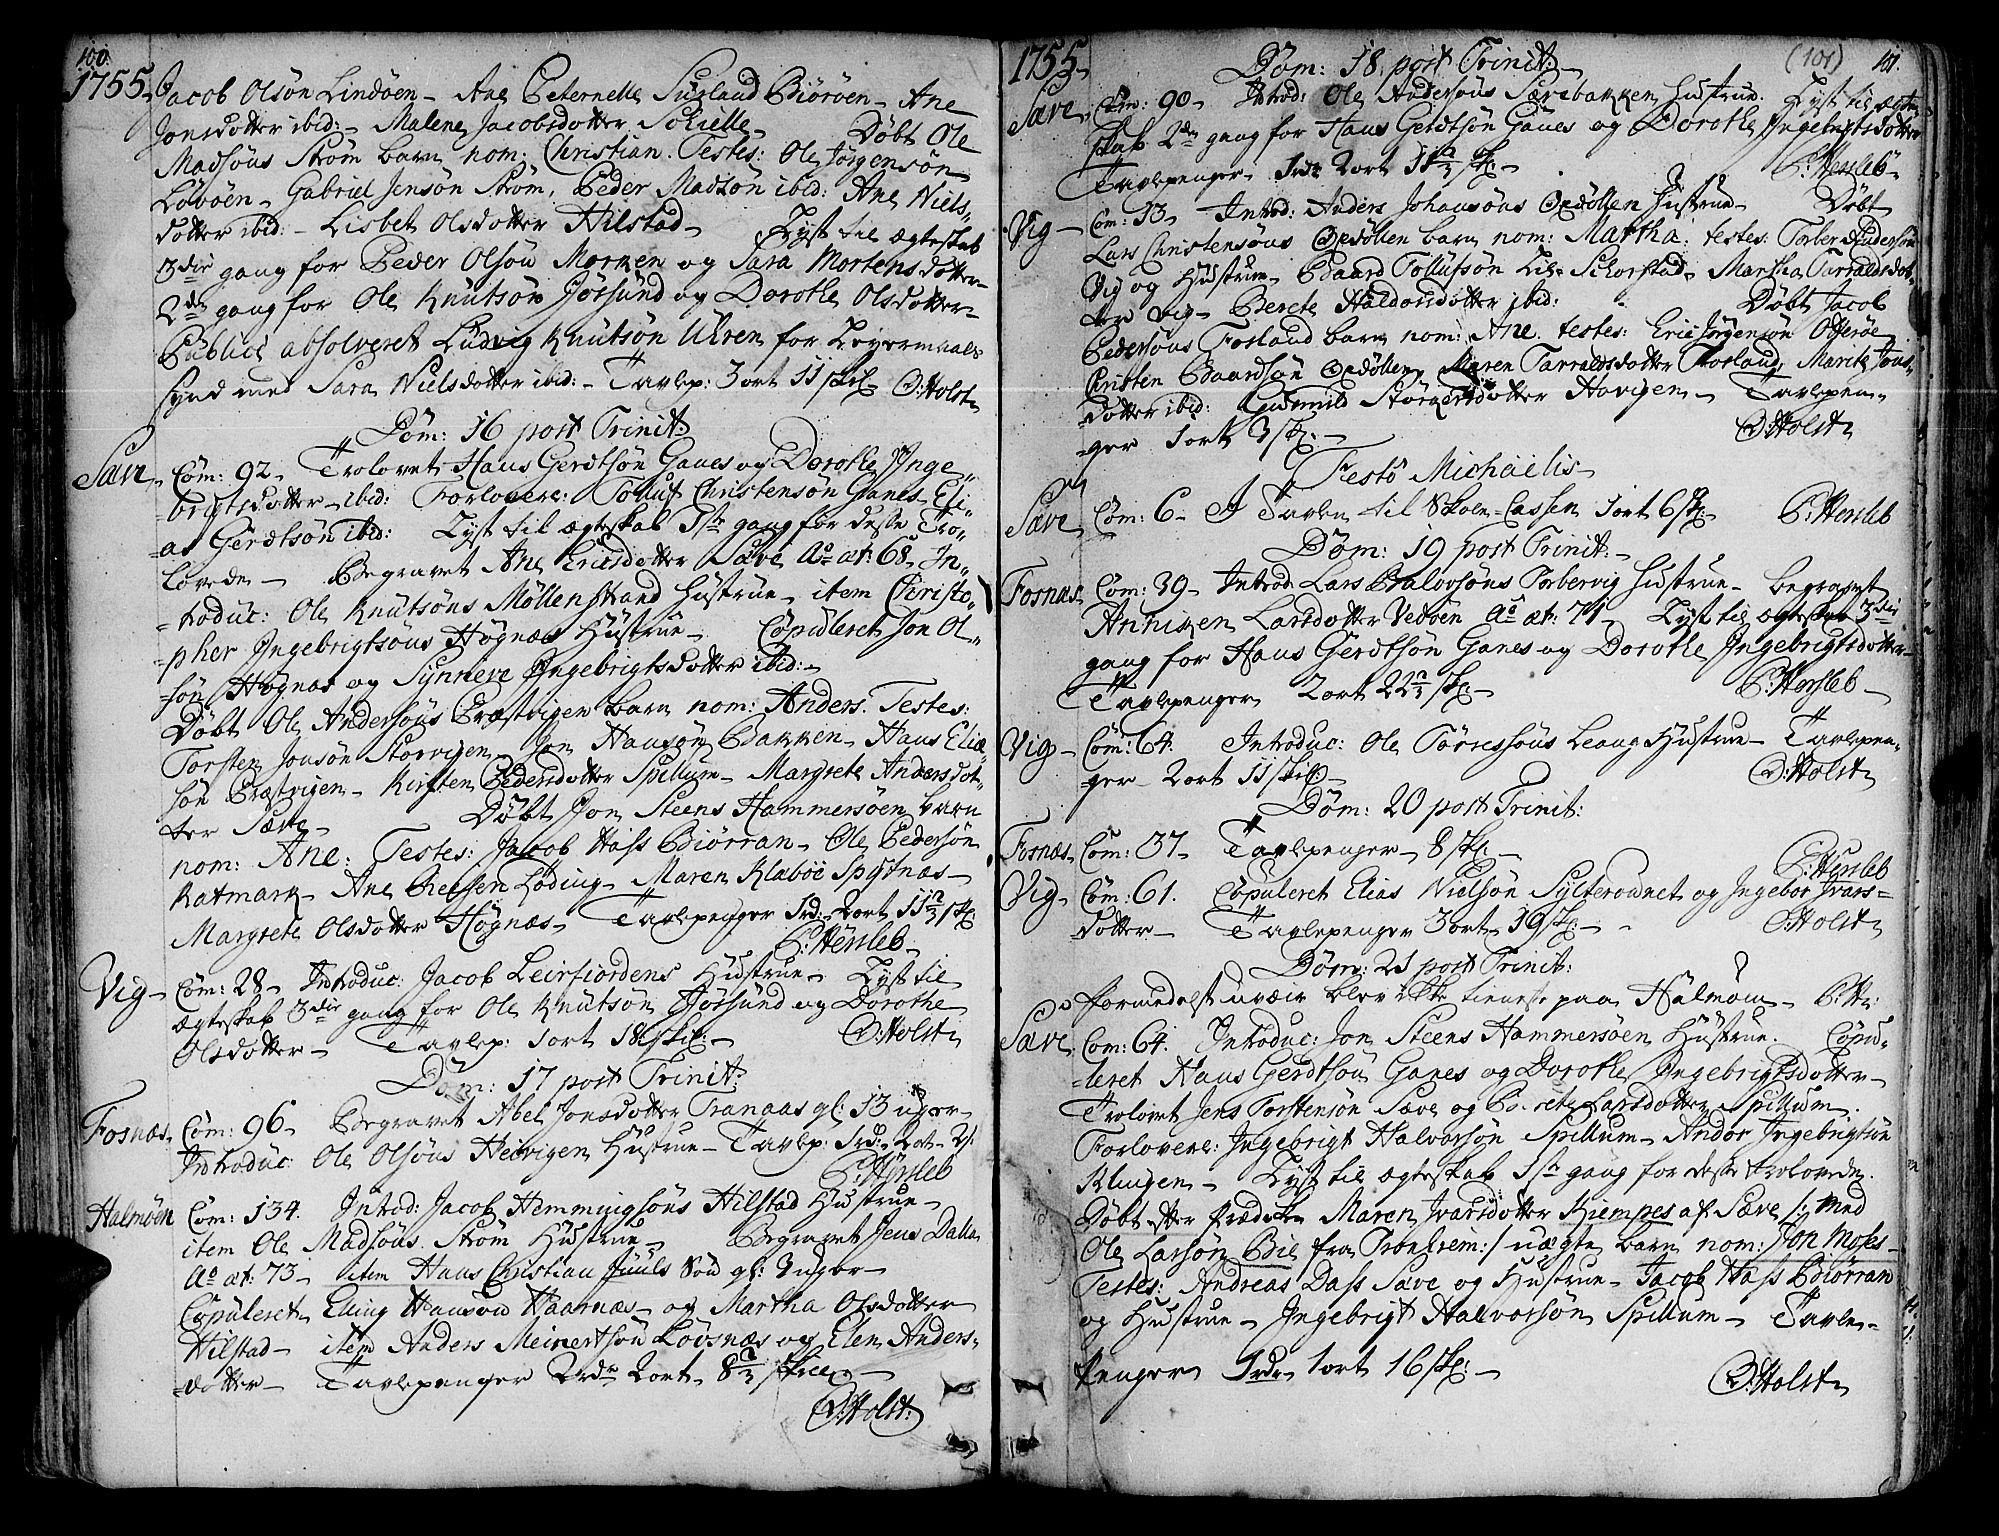 100.
1755
Jacob Olsön Lindöen - Ane Peternelle Suuland Biöröen - Ane
Jonsdotter ibid: - Malene Jacobsdotter Döbt Ole
Madsöns Ström barn nom: Christian. Testes: Ole Jörgensön
Lövöen - Gabriel Jensön Ström, Peder Madsön ibid: Ane Niels-
dotter ibid: - Lisbet Olsdotter Hilstad - Lyst til ægteskab
3die gang for Peder Olsön Morken og Sara Mortensdotter -
2den gang for Ole Knutsön Jörsund og Dorothe Olsdotter -
Publicè absolveret Ludvig Knutsön Ulven for Leyermaals
Synd med Sara Nielsdotter ibid: - Tavlep: 3 ort 11 skil O: Holst
Dom: 16 post Trinit:
Sæve Com: 92 - Trolovet Hans Gerdtsön Ganes og Dorothe Inge-
brigtsdotter ibid: Forlovere: Tolluf Christensön Ganes, Eli-
as Gerdtsön ibid: Lyst til ægteskab 1ste gang for desse Tro-
lovede - Begravet Ane Ericsdotter Sæve Ao æt: 68 - In-
troduc: Ole Knutsöns Möllenstrand Hustrue - item Christo-
pher Ingebrigtsöns Högnæs Hustrue - Copuleret Jon Ol-
sön Högnæs og Synneve Ingebrigtsdotter ibid: -
Döbt Ole Andersöns Præstvigen barn nom: Anders. Testes:
Torsten Jonsön Storvigen - Jon Hansön Bakken - Hans Eliæ
sön Præstvigen - Kirsten Pedersdotter Spillum - Margrete Andersdot-
ter Sæve - Döbt Jon Steens Hammersöen barn
nom: Ane: Testes: Jacob Hass Biörran - Ole Pedersön
Katmark - Ane Löding - Maren Klæboe Spytnæs -
Margrete Olsdotter Högnæs - Tavlepenger 1rd: 2ort 11 1/2 sk:
P: Hersleb -
Vig - Com: 28 - Introduc: Jacob Leirfiordens Hustrue - Lyst til
ægteskab 3die gang for Ole Knutsön Jörsund og Dorothe
Olsdotter - Tavlep: 1 ort 18 skil: - O: Holst
Dom: 17 post Trinit:
Fosnæs - Com: 96 - Begravet Abel Jonsdotter Tranaas gl: 13 uger -
Introduc: Ole Olsöns Heivigen Hustrue - Tavlep: 1rd:
P: Hersleb
Halmöen Com: 134. Introd: Jacob Hemmingsöns Hilstad Hustrue -
item Ole Madsöns Ström Hustrue - Begravet Jens Dalla
Ao æt: 73 - item Hans Christian Juuls Sön gl: 3 uger -
Copuleret Elling Hansön Haarnæs - og Martha Olsdotter
Hilstad - item Anders Meinertsön Lövsnæs og Elen Anders-
dotter - Tavlepenger 2rdr 2ort 8 1/2 skill: -
O: Holst:
1755 - (101) 101.
Dom: 18 post Trinit: -
Sæve - Com: 90 - Introd: Ole Andersöns Sævebakken Hustrue. Lyst til ægte-
skab 2den gang for Hans Gerdtsön Ganes og Dorothe Ingebrigtsdotter
Tavlepenger 1rd: 2ort 11 1/2 sk: P: Hersleb -
Vig - Com: 13 - Introd: Anders Johansöns Opdöllen Hustrue - Döbt
Lars Christensöns Opdöllen barn nom: Martha: testes: Torber Andersön
Vig og Hustrue - Baard Tollufsön Schorstad - Martha Tarraldsdot-
ter Vig - Berete Haldorsdotter ibid: Döbt Jacob
Pedersöns Forland barn nom: Ane. testes: Eric Jörgensön Otteröe
Christen Baardsön Opdöllen, Maren Tarraldsdotter Forland, Marite Jons-
dotter ibid: Gunnild Störkersdotter Hovigen - Tavlepen-
ger 1 ort 3 sk: - O: Holst
Festo Michaëlis -
Sæve Com: 6 - I Tavlen til Skole-Cassen 1 ort 6 sk: - P: Hersleb
Dom: 19 post Trinit: -
Fosnæs - Com: 39 - Introd: Lars Halvorsöns Torbervig Hustrue - begravet
Anniken Larsdotter Vedöen Ao æt: 71 - Lyst til ægteskab 3die
gang for Hans Gerdtsön Ganes og Dorothe Ingebrigtsdotter -
Tavlepenger 2 ort 22 1/2 sk: - P: Hersleb -
Vig - Com: 64. Introduc: Ole Torressöns Leang Hustrue - Tavlepen-
ger 2 ort 11 skil - O: Holst
Dom: 20 post Trinit:
Fosnæs - Com: 37 - Tavlepenger - 8 sk: - P: Hersleb
Vig - Com: 61. Copuleret Elias Nielsön Sylterodnet og Ingebor Ivars-
dotter - Tavlepenger 3 ort 19 sk: - O: Holst
Dom: 21 post Trinit:
Formedelst uveir blev ikke tieneste paa Halmöen - P: H:
Sæve Com: 64. Introduc: Jon Steens Hammersöen Hustrue. Copu-
leret Hans Gerdtsön Ganes og Dorothe Ingebrigtsdotter -
Trolovet Jens Torstensön Sæve og Berete Larsdotter Spillum.
Forlovere: Ingebrigt Halvorsön Spillum - Andor Ingebrigtsön
Klingen - Lyst til ægteskab 1ste gang for desse trolovede.
Döbt efter Prædiken Maren Ivarsdotter Kiempes af Sæve /: med
Ole Larsön Bie fra Tronhiem :/ uægte barn nom: Jon Moses -
Testes: Andreas Dass Sæve og Hustrue - Jacob Hass Biörran
og Hustrue - Ingebrigt Halvorsön Spillum - Tavle-
penger 1rdr 1 ort 16 sk: - O: Holst